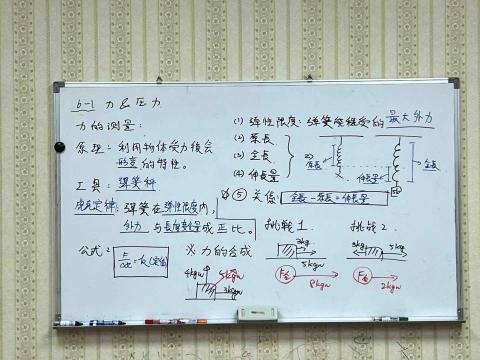 6-1 力 & 压力
力的測量:
原理: 利用物体受力後会
形变的特性。
工具: 弹簧秤
虎克定律: 弹簧在弹性限度内,
外力与長度变化量成正比。
公式: F/Δx = k(定值)
(1) 弹性限度: 弹簧能承受的最大外力
(2) 原長
(3) 全長
(4) 伸長量
原長
伸長量
全長
⑤ 关係: 全長 - 原長 = 伸長量
※ 力的合成
4kgw
5kgw
3kgw
挑戦1
3kgw
5kgw
F合
8kgw
挑戦2
3kgw
5kgw
F合
2kgw